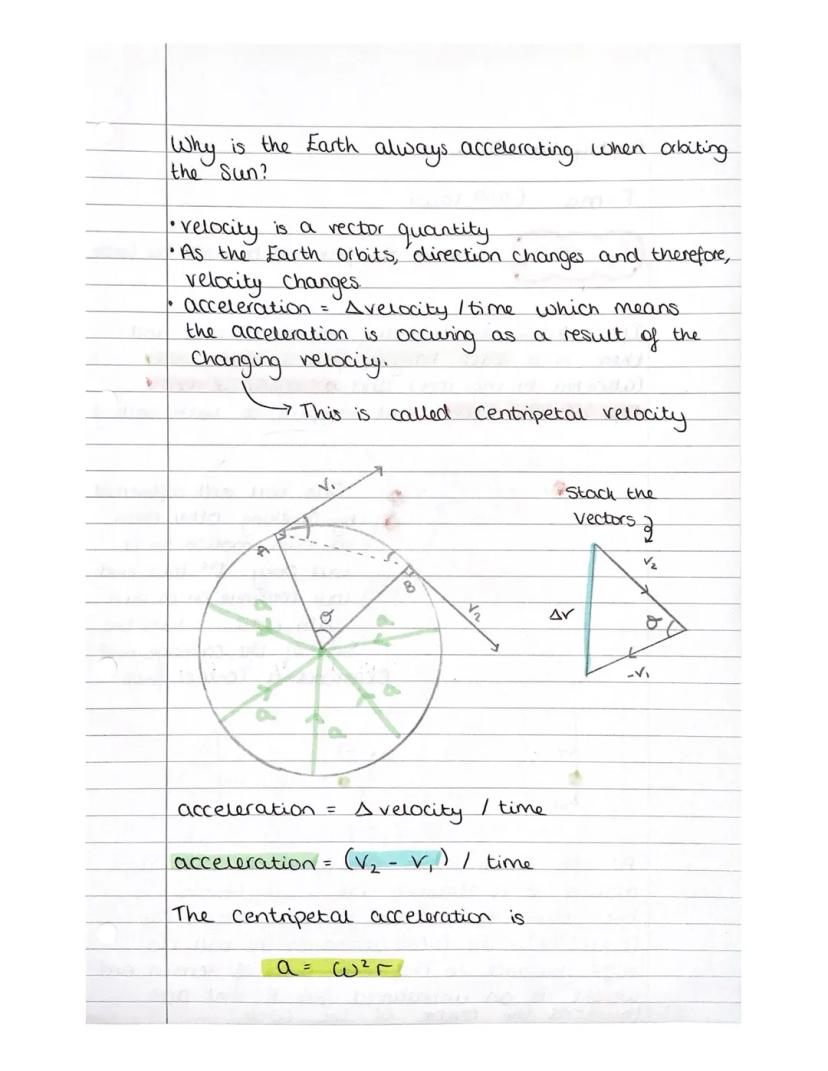 Why is the Earth always accelerating when orbiting
the Sun?
• velocity is a vector quantity
• As the Earth Orbits, direction changes and therefore,
velocity changes
• acceleration = Δvelocity / time which means
the acceleration is occuring as a result of the
changing velocity.
→ This is called centripetal velocity
V₁
A
B
θ
V₂
a
a
a
a
a
Stack the
vectors
V₂
Δv
θ
-V₁
acceleration = Δ velocity / time
acceleration = (V₂ - V₁) / time
The centripetal acceleration is
a = ω²r